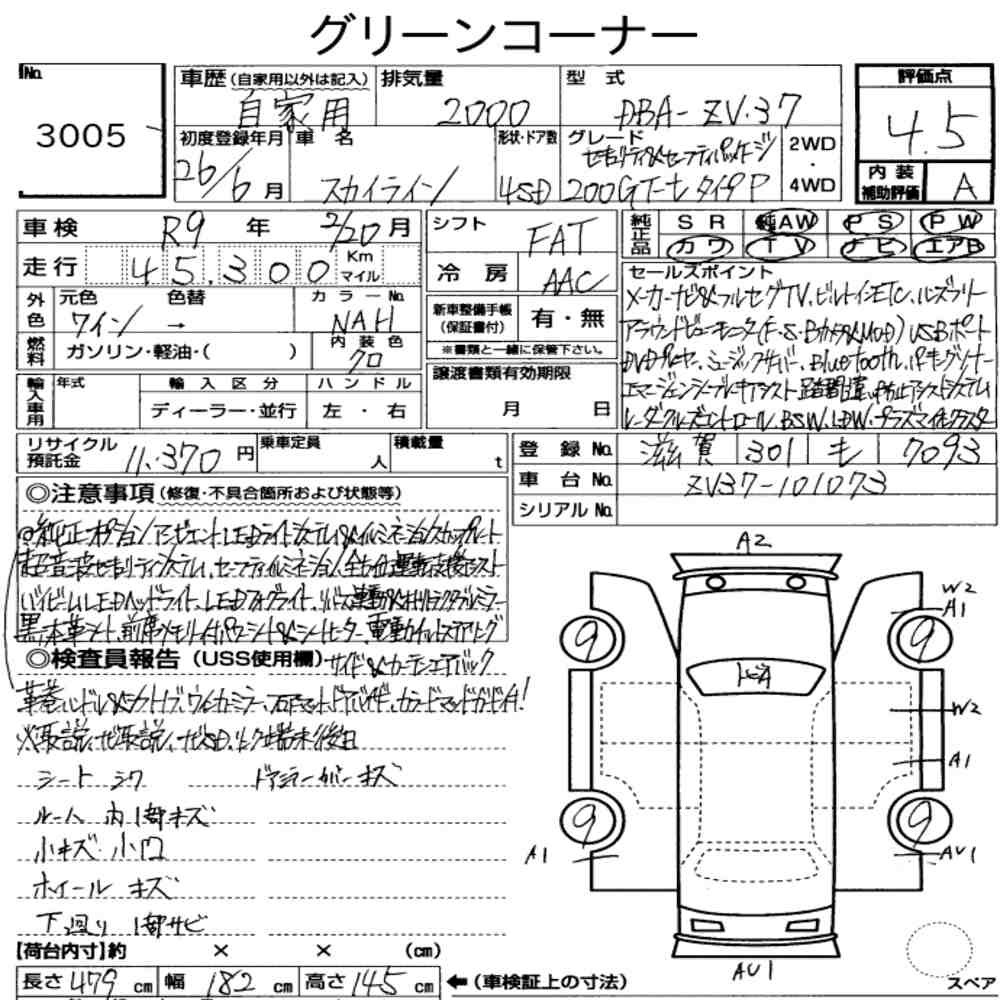 グリーンコーナー
No. 3005
車歴 (自家用以外は記入) 自家用
排気量 2000
型式 DBA-ZV37
評価点 4.5
初度登録年月 26/6月
車名 スカイライン
形状・ドア数 4SD
グレード セキュリティ&セーフティパッケージ
200GT-t タイプP
2WD・4WD
内装補助評価 A
車検 R9年 2/20月
シフト FAT
純正品 SR 純AW PS PW
カワ TV ナビ エアB
走行 45,300 Km マイル
冷房 AAC
外色 元色 ワイン → 色替
カラーNo. NAH
新車整備手帳 (保証書付) 有・無
※書類と一緒に保管下さい。
燃料 ガソリン・軽油・( )
内装色 クロ
セールスポイント
メーカーナビ&フルセグTV、ビルトインETC、ルムフリー
アラウンドビューモニタ(F・S・Bカメラ&MOD) USBポート
DVDプレーヤー、ミュージックサーバー、Bluetooth、Iキー、プッシュ
エマージェンシーブレーキアシスト 踏間違い防止アシストシステム
レーダークルーズコントロール、BSW、LDW、プラズマイオンクラスター
輸入車用 年式 輸入区分 ハンドル
ディーラー・並行 左・右
譲渡書類有効期限 月 日
リサイクル預託金 11,370円
乗車定員 人
積載量 t
登録No. 滋賀 301 も 7093
車台No. ZV37-101073
シリアルNo.
◎注意事項 (修復・不具合箇所および状態等)
純正オプション アンビエントLEDライトシステム&イルミネーションスカッフプレート
超音波セキュリティシステム、セーフティイルミネーション、全方位運転支援システム
ハイビームLEDヘッドライト、LEDフォグライト、リバース連動&ヒーター付ドアミラー
黒本革シート、前席メモリー付パワーシート&シートヒーター、電動チルトステアリング
◎検査員報告 (USS使用欄) サイド&カーテンエアバック
革巻ハンドル&シフトノブ、ウィンカーミラー、フロアマット、ドアバイザー、カラードマッドガード付!
※取説、ナビ取説、ナビSD、リモコン端末後日
シート シワ
ドアミラーカバー キズ
ルーム内1部キズ
小キズ 小凹
ホイール キズ
下廻り 1部サビ
A2
W2
A1
9
9
トビA
W2
A1
9
9
A1
AU1
AU1
スペア
【荷台内寸】約 × × (cm)
長さ 479 cm 幅 182 cm 高さ 145 cm
←(車検証上の寸法)